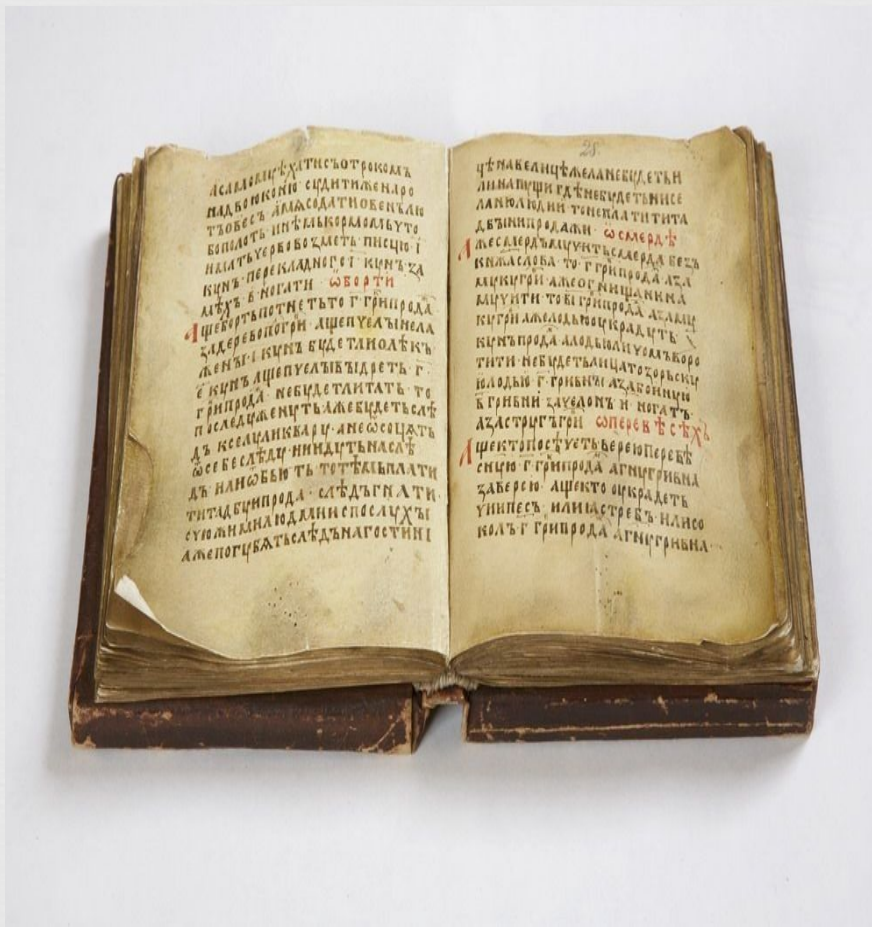 а самомꙋ ѣхати съ отрокомъ
на двою коню сꙋдити же на ро
тъ овесъ а мѧсо дати овенъ лю
бо полоть инѣмь кормомь ꙋто
има ть черево возметь писцю і
кꙋнъ перекладного і кꙋнъ за
мѣхъ в ногати ѿ борти
Аще борть потнеть то г гри прода
за дерево пол гри аще пчелы
жены і кꙋнъ бꙋде тли олѣкъ
е кꙋнъ аще пчелы выдреть г
гри прода не бꙋдет ли тать то
по следꙋ женꙋть аже бꙋдеть слѣ
дъ к селꙋ ли к варꙋ а не ѿсоцѧть
ѿ себе слѣдꙋ ни идꙋть на слѣ
дъ или ѿбьють то тѣмь плати
ти татбꙋ и прода слѣдъ гнати
с чюжими людми и с послꙋхы
аже погꙋбѧть слѣдъ на гостини
28
цѣ на велицѣ же ла не бꙋдеть и
ли на пꙋщи гдѣ не бꙋдеть ни се
ла ни людии то не платити та
двы ни продажи ѿ смердѣ
Аже смердъ мꙋчить смерда безъ
кнѧжа слова то г гри прода а за
мꙋкꙋ гри аже огнищанина
мꙋчити то ві гри прода а за мꙋ
кꙋ гри аже лодью ѹкрадꙋть
кꙋнъ прода а лодью лицомь воро
тити не бꙋдеть лица то за морьскꙋ
ю лодью г гривны а за бойнꙋю
в гривни за челонъ и ногатъ
а за стрꙋгъ гри ѿ перевѣсѣхъ
Аще кто посѣчеть верею перевѣ
снꙋю г гри прода а г꙯нꙋ гривна
за верею аще кто ѹкрадеть
чии песъ или ꙗстребъ или со
колъ г гри прода а г꙯нꙋ гривна